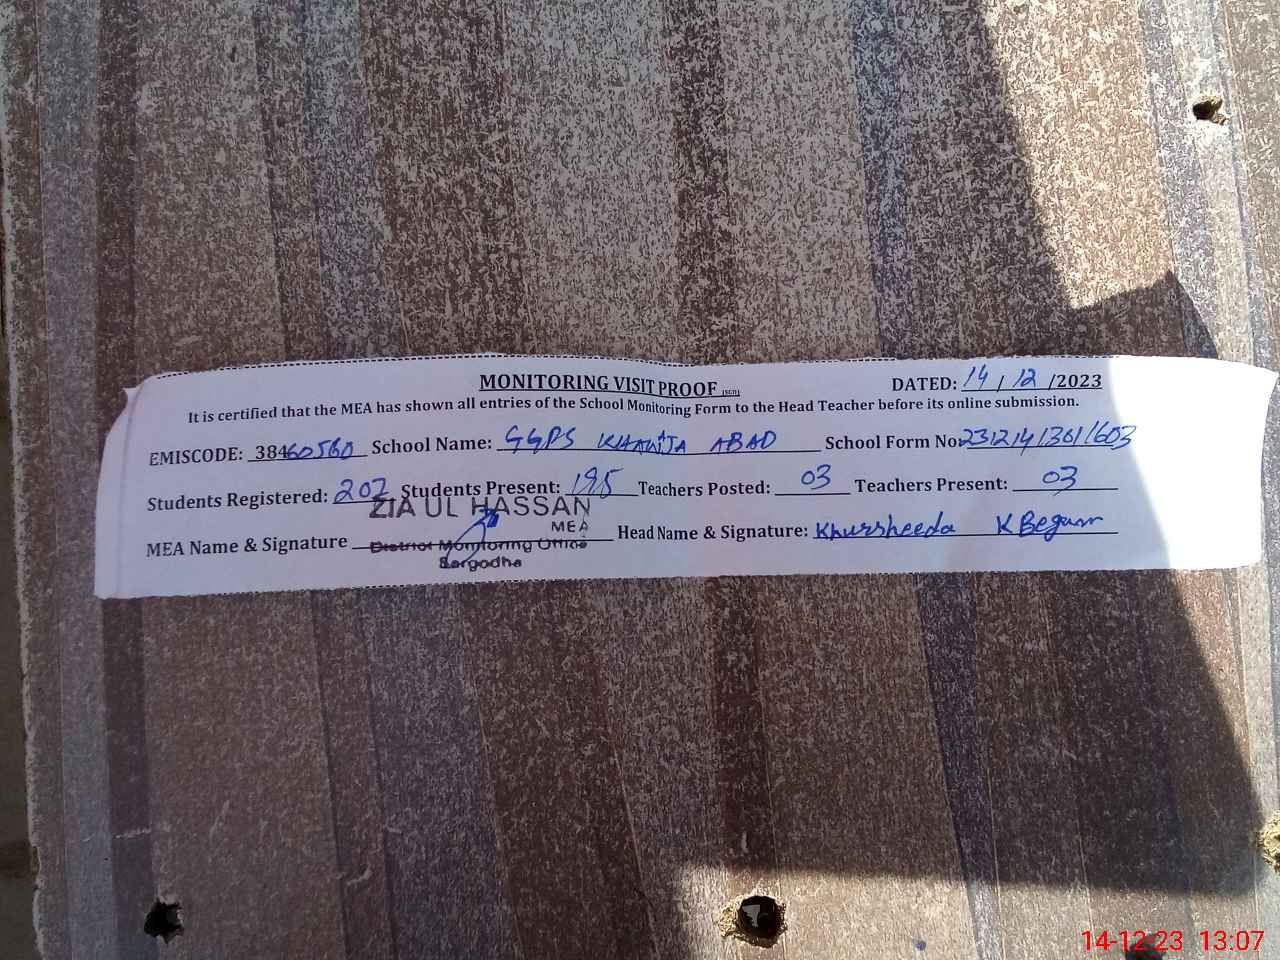 MONITORING VISIT PROOF (SGD) DATED: 14 / 12 /2023
It is certified that the MEA has shown all entries of the School Monitoring Form to the Head Teacher before its online submission.
EMISCODE: 38460560 School Name: GGPS KHAWJA ABAD School Form No: 23121413611603
Students Registered: 202 Students Present: 195 Teachers Posted: 03 Teachers Present: 03
ZIA UL HASSAN
MEA
MEA Name & Signature Head Name & Signature: Khursheeda K Begum
District Monitoring Office
Sargodha
14-12-23 13:07